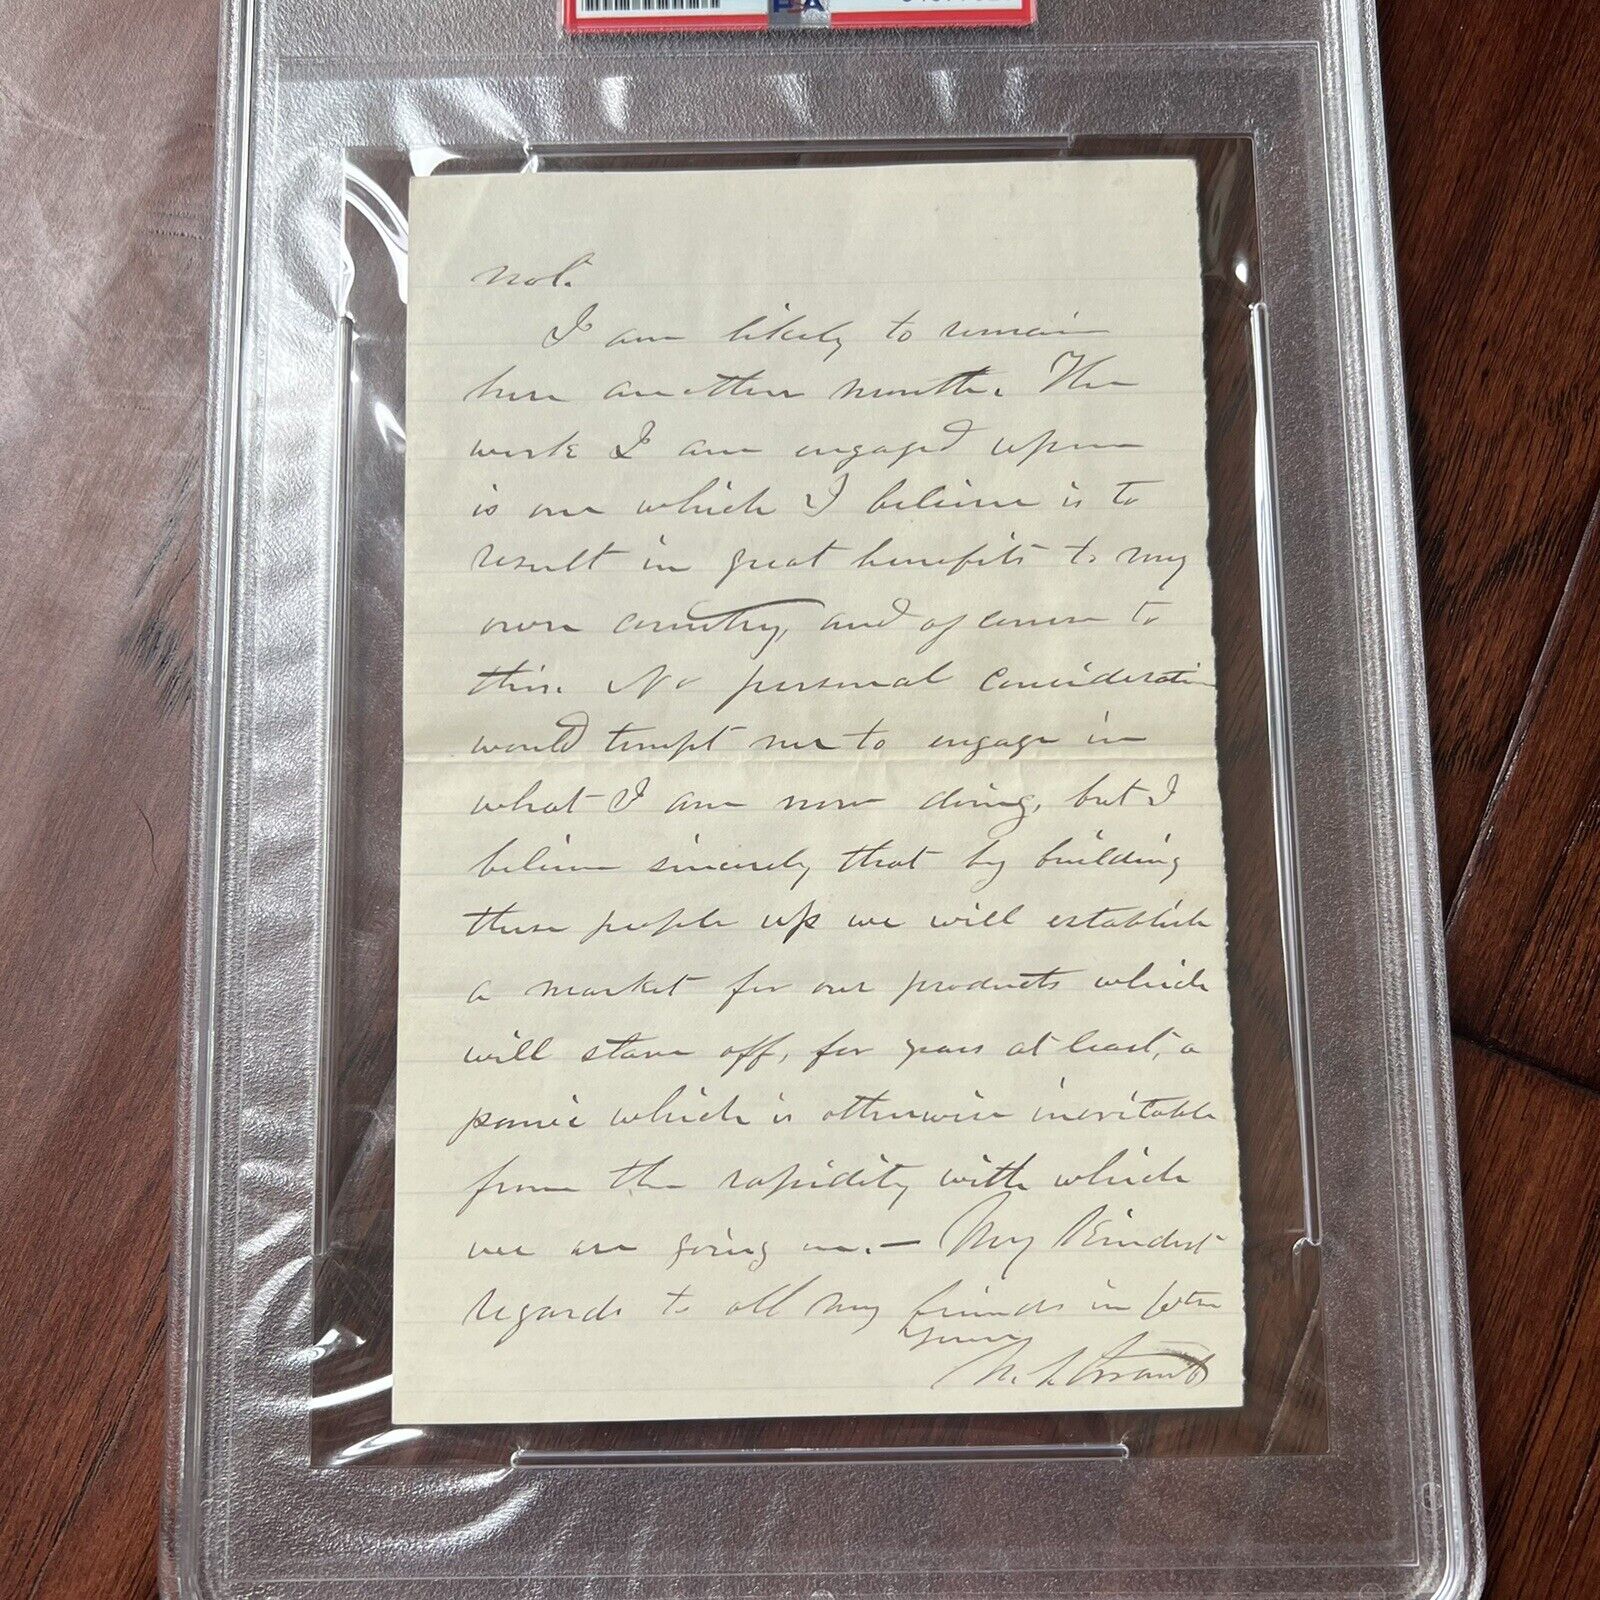 PSA
not.
I am likely to remain
here another month. The
work I am engaged upon
is one which I believe is to
result in great benefits to my
own country, and of course to
this. No personal consideration
would tempt me to engage in
what I am now doing, but I
believe sincerely that by building
these people up we will establish
a market for our products which
will stave off, for years at least, a
panic which is otherwise inevitable
from the rapidity with which
we are going on.— My Kindest
regards to all my friends in
Yours
U. S. Grant